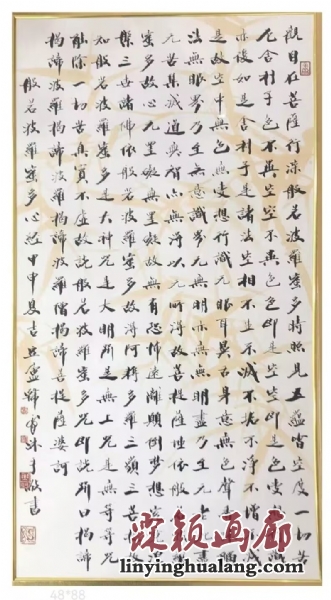 觀自在菩薩行深般若波羅蜜多時照見五蘊皆空度一切苦
厄舍利子色不異空空不異色色即是空空即是色受想行識
亦復如是舍利子是諸法空相不生不滅不垢不淨不增不減
是故空中無色無受想行識无眼耳鼻舌身意无色聲香味觸
法無眼界乃至無意識界无無明亦無無明盡乃至无老死亦無老死盡
无苦集滅道無智亦無得以无所得故菩提薩埵依般若波羅
蜜多故心无罣礙無罣礙故無有恐怖遠離顛倒夢想究竟涅
槃三世諸佛依般若波羅蜜多故得阿耨多羅三藐三菩提故
知般若波羅蜜多是大神咒是大明咒是無上咒是無等等咒
能除一切苦真實不虛故說般若波羅蜜多咒即說咒曰揭諦
揭諦波羅揭諦波羅僧揭諦菩提薩婆訶
般若波羅蜜多心經甲申夏吉
霖颖画廊
linyinghualang.com
48*88